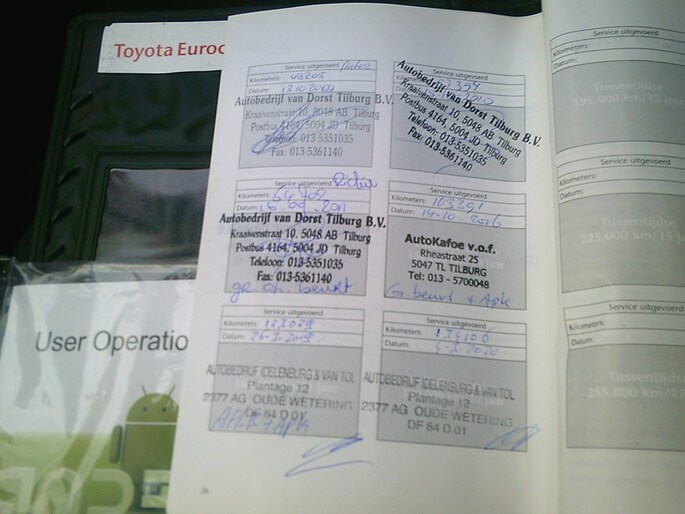 Toyota Euroc
User Operatio
Service uitgevoerd
Kilometers: 43205
Datum: 13 10 2009
Autobedrijf van Dorst Tilburg B.V.
Kraaivenstraat 10, 5048 AB Tilburg
Postbus 4164, 5004 JD Tilburg
Telefoon: 013-5351035
Fax: 013-5361140
Service uitgevoerd
Kilometers:
Datum: 2010
Autobedrijf van Dorst Tilburg B.V.
Kraaivenstraat 10, 5048 AB Tilburg
Postbus 4164, 5004 JD Tilburg
Telefoon: 013-5351035
Fax: 013-5361140
Service uitgevoerd
Kilometers:
Datum: 2011
Autobedrijf van Dorst Tilburg B.V.
Kraaivenstraat 10, 5048 AB Tilburg
Postbus 4164, 5004 JD Tilburg
Telefoon: 013-5351035
Fax: 013-5361140
gr. on. beurt
Service uitgevoerd
Kilometers: 103391
Datum: 14-10-2016
AutoKafoe v.o.f.
Rheastraat 25
5047 TL TILBURG
Tel: 013 - 5700048
Gr. beurt + Apk
Service uitgevoerd
Kilometers: 123029
Datum: 26-3-2019
AUTOBEDRIJF IDELENBURG & VAN TOL
Plantage 12
2377 AG OUDE WETERING
DF 84 D 01
Service uitgevoerd
Kilometers: 134106
Datum: 2020
AUTOBEDRIJF IDELENBURG & VAN TOL
Plantage 12
2377 AG OUDE WETERING
DF 84 D 01
Service uitgevoerd
Kilometers:
Datum:
Tussentijdse
195.000 km/13 jaar
Service uitgevoerd
Kilometers:
Datum:
Tussentijdse
225.000 km/15 ja
Service uitgevoerd
Kilometers:
Datum:
Tussentijdse
255.000 km/17